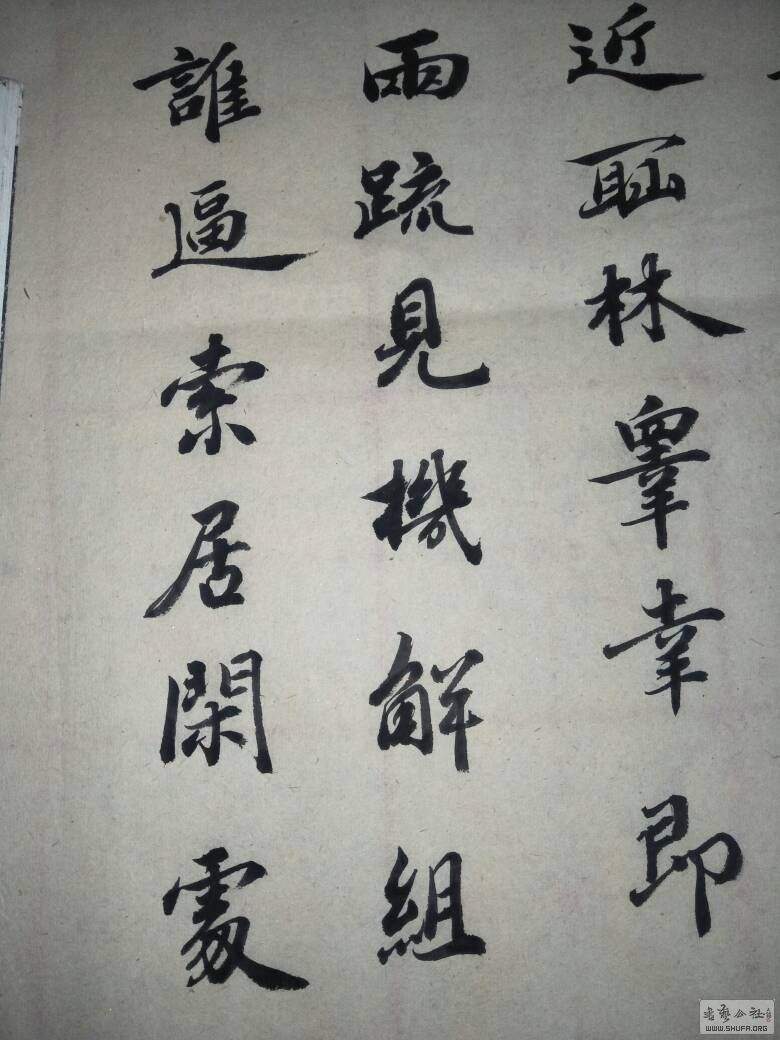 近耻林睾幸即
兩疏見機解組
誰逼索居閑處
書藝公社
WWW.SHUFA.ORG